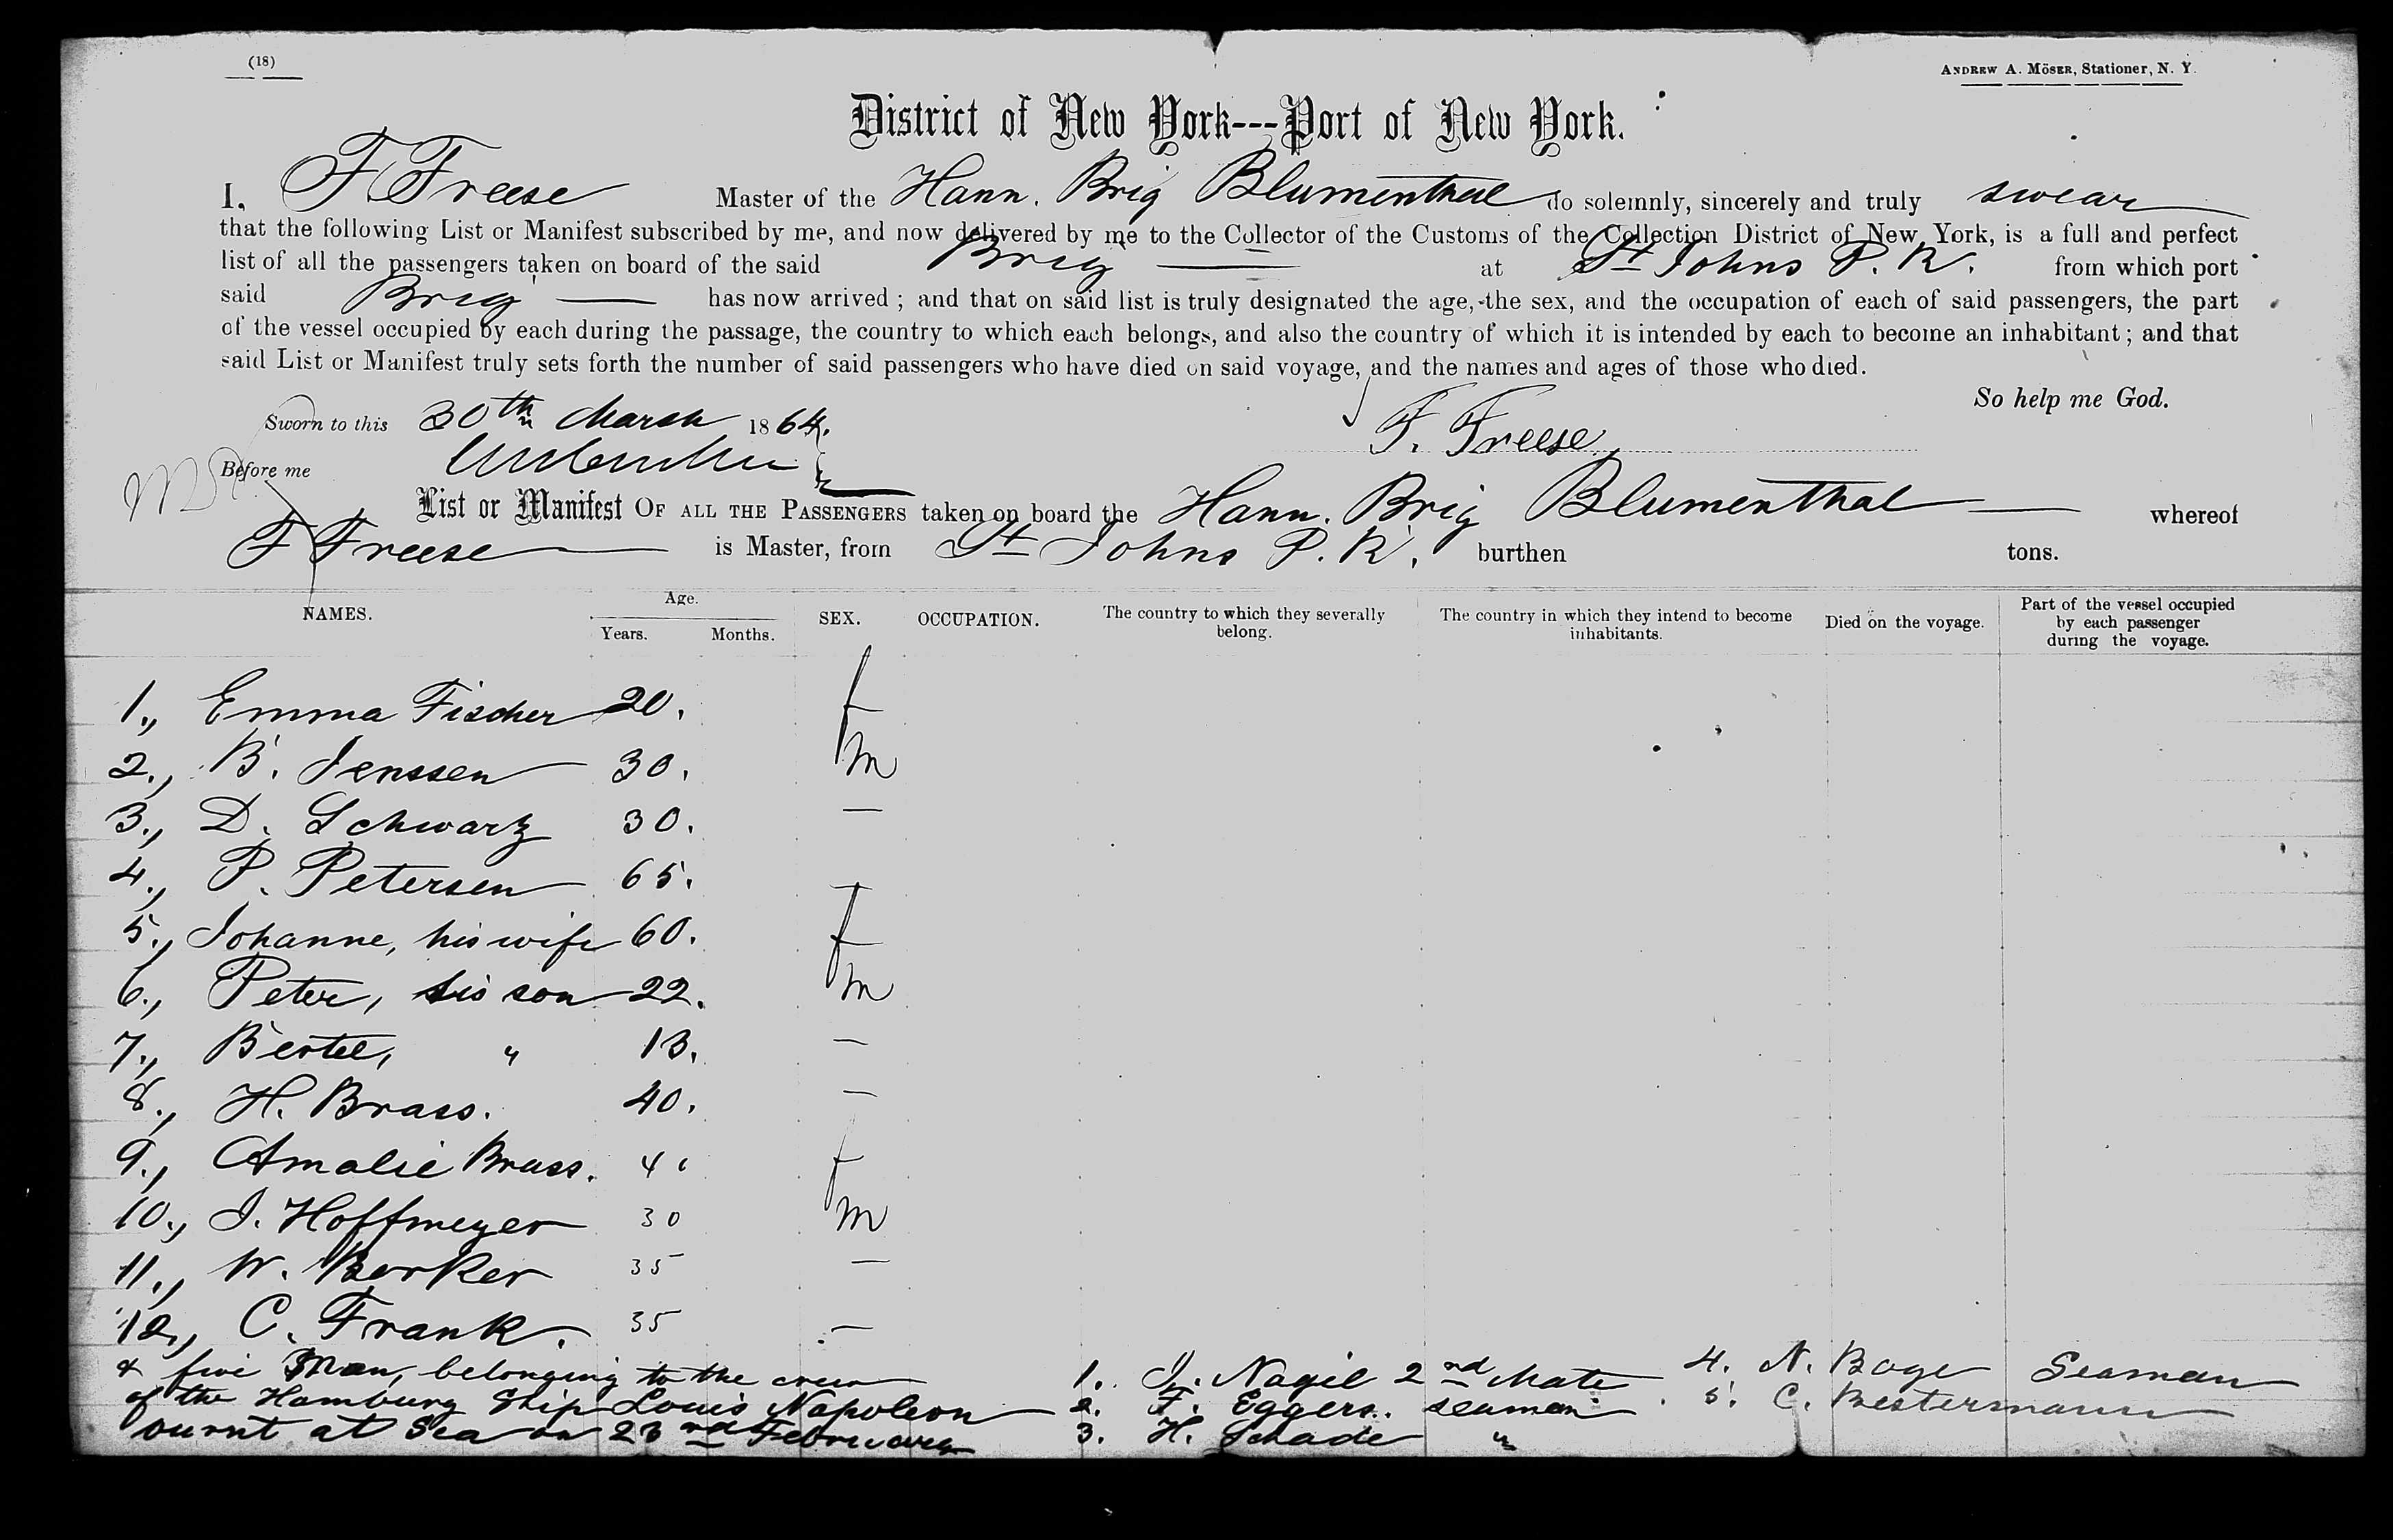 (18)
ANDREW A. MÖSER, Stationer, N. Y.
District of New York---Port of New York.
I, F Freese Master of the Hann. Brig Blumenthal do solemnly, sincerely and truly swear
that the following List or Manifest subscribed by me, and now delivered by me to the Collector of the Customs of the Collection District of New York, is a full and perfect
list of all the passengers taken on board of the said Brig at St Johns P. R. from which port
said Brig has now arrived ; and that on said list is truly designated the age, the sex, and the occupation of each of said passengers, the part
of the vessel occupied by each during the passage, the country to which each belongs, and also the country of which it is intended by each to become an inhabitant ; and that
said List or Manifest truly sets forth the number of said passengers who have died on said voyage, and the names and ages of those who died.
So help me God.
Sworn to this 30th March 1864.
F. Freese
Before me
List or Manifest OF ALL THE PASSENGERS taken on board the Hann. Brig Blumenthal whereof
F Freese is Master, from St Johns P. R. burthen tons.
NAMES. Age. Years. Months. SEX. OCCUPATION. The country to which they severally belong. The country in which they intend to become inhabitants. Died on the voyage. Part of the vessel occupied by each passenger during the voyage.
1., Emma Fischer 20. f
2., B. Jenssen 30. m
3., D. Schwartz 30. —
4., P. Petersen 65. —
5., Johanne, his wife 60. f
6., Peter, his son 22. m
7., Bertel, " 13. —
8., H. Brass. 40. —
9., Amalie Brass. f
10., J. Hoffmeyer 30 m
11., W. Borker 35 —
12., C. Frank. 35 —
& five Man, belonging to the crew
of the Hamburg Ship Louis Napoleon
burnt at Sea on 23rd February
1. J. Nagel 2nd Mate
2. F. Eggers. seaman
3. H. Schade "
4. N. Boge Seaman
5. C. Bestermann